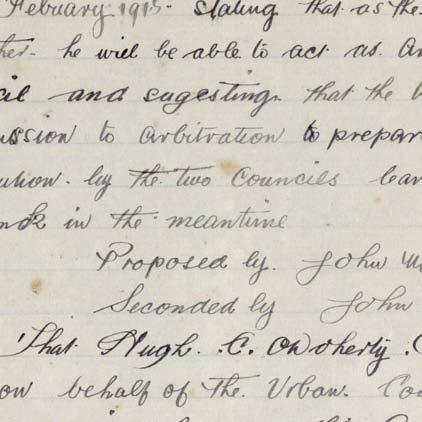 February 1915. stating that as the
ther. he will be able to act as Ar
cil and sugesting that the
ission to arbitration to prepar
ution. by the two Councils
in the meantime
Proposed by. John
Seconded by John
That Hugh. C. ODoherty.
on behalf of the Urban. Cou